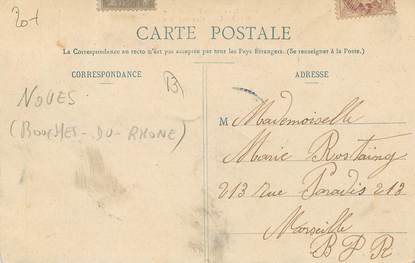 201
CARTE POSTALE
La Correspondance au recto n'est pas acceptée par tous les Pays Étrangers. (Se renseigner à la Poste.)
CORRESPONDANCE
ADRESSE
B
NOVES
(BOUCHES-DU-RHONE)
M Mademoiselle
Marie Rostaing
213 rue Paradis 213
Marseille
B D R